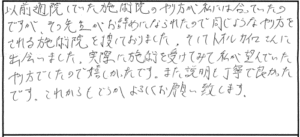 以前通院していた施術院のやり方が私には合っていたの
ですが、その先生がお辞めになられたので同じようなやり方を
される施術院を捜しておりました。そしてトイルカイロさんに
出会いました。実際に施術を受けてみて私が望んでいた
やり方でしたので嬉しかったです。また、説明も丁寧で良かった
です。これからもどうかよろしくお願い致します。